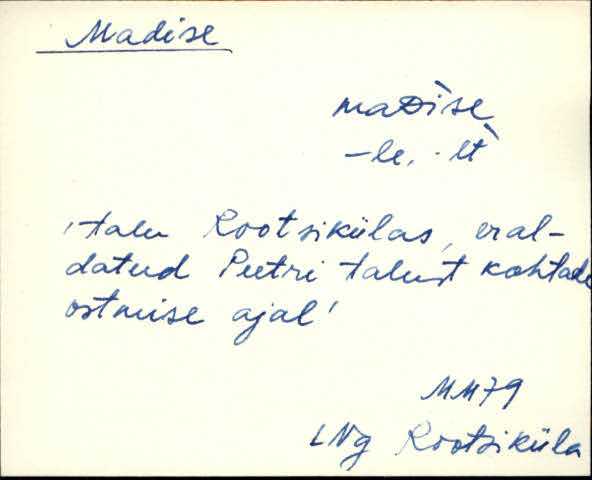 Madise
maDìse
-le, -lt̀
'talu Rootsikülas, eral-
datud Peetri talust kohtade
ostmise ajal'
MM79
LNg Rootsiküla